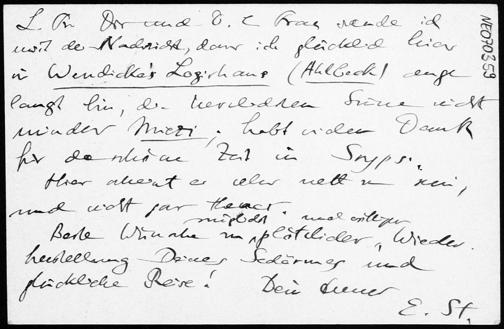 L. Fr. Dir und D. l. Frau sende ich
mit der Nachricht, dass ich glücklich hier
in Wendicke's Logirhaus (Ahlbeck) ange
langt bin, die herzlichsten Grüsse nicht
minder Mitzi; habt vielen Dank
für die schöne Zeit in
Hier scheint es aber nett zu sein,
und nicht gar theuer.
möglichst und völliger
Beste Wünsche zu plötzlicher, Wieder
herstellung Deines Gedärmes und
glückliche Reise! Dein treuer
E. St.
NE070359